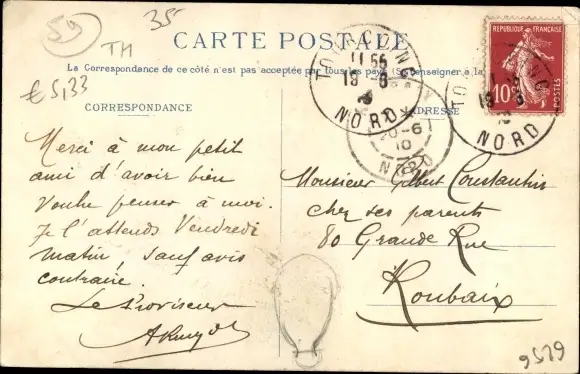 59
TH
35
€5,33
CARTE POSTALE
La Correspondance de ce côté n'est pas acceptée par tous les pays (Se renseigner à la
CORRESPONDANCE
ADRESSE
RÉPUBLIQUE FRANÇAISE
10
POSTES
TOURCOING
19-6
NORD
TOURCOING
19-6
NORD
20-6
10
Merci à mon petit
ami d'avoir bien
voulu penser à moi.
Je l'attends Vendredi
matin, sauf avis
contraire.
Le Proviseur
Monsieur Albert Constantin
chez ses parents
80 Grande Rue
Roubaix
9529